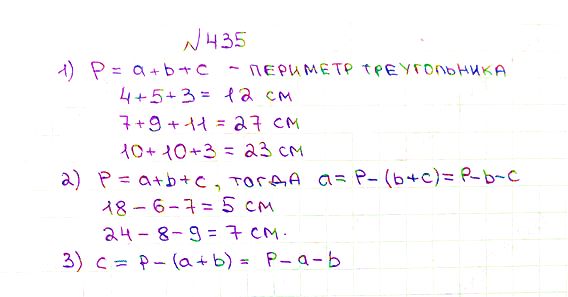 №435
1) P = a+b+c – ПЕРИМЕТР ТРЕУГОЛЬНИКА
4+5+3 = 12 см
7+9+11 = 27 см
10+10+3 = 23 см
2) P = a+b+c, тогда a = P–(b+c) = P–b–c
18 – 6 – 7 = 5 см
24 – 8 – 9 = 7 см.
3) c = P –(a+b) = P–a–b